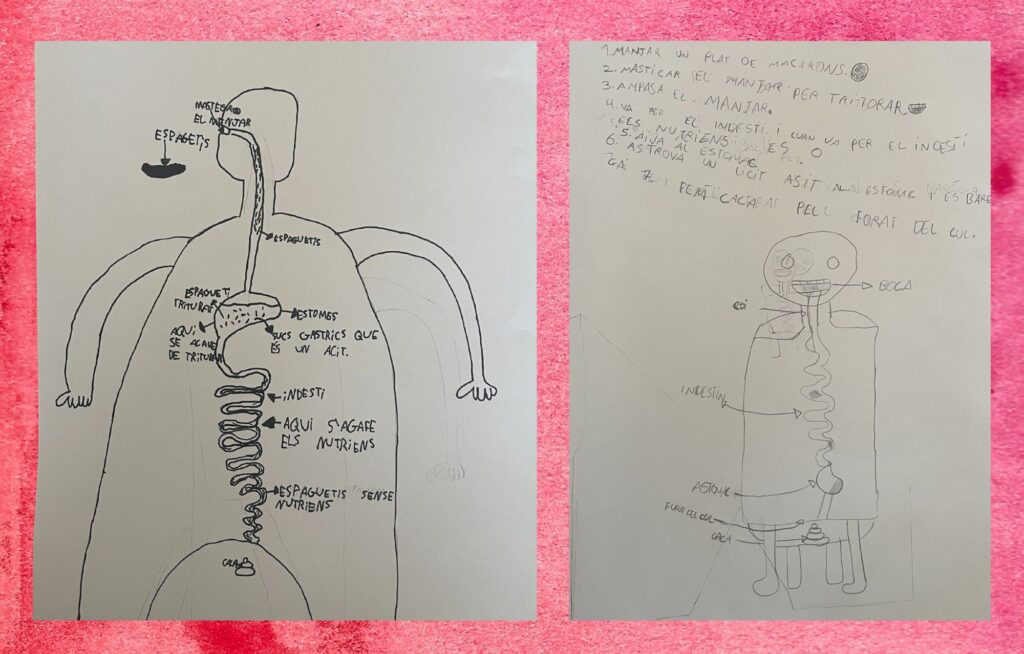 MASTEGA
EL MANJAR
ESPAGETIS
ESPAGUETIS
ESPAGUETI
TRITURAT
ESTOMES
AQUI
SE ACABE
DE TRITURAR
SUCS GASTRICS QUE
ÉS UN ACIT.
INDESTI
AQUI S'AGAFE
ELS NUTRIENS
ESPAGUETIS SENSE
NUTRIENS
CACA
1. MANJAR UN PLAT DE MACARONS.
2. MASTICAR EL MANJAR PER TRITORAR.
3. AMPASA EL MANJAR.
4. VA PER EL INDESTI I CUAN VA PER EL INDESTI
ELS NUTRIENS ES O
5. AL ESTOMAC
6. ASTROVA UN LICIT ASIT ALA ESTOMC I ES BARE
GA
7. PELL FORAT DEL CUL.
BOCA
INDESTIN
ASTOMAC
FURAT DEL CUL
CACA